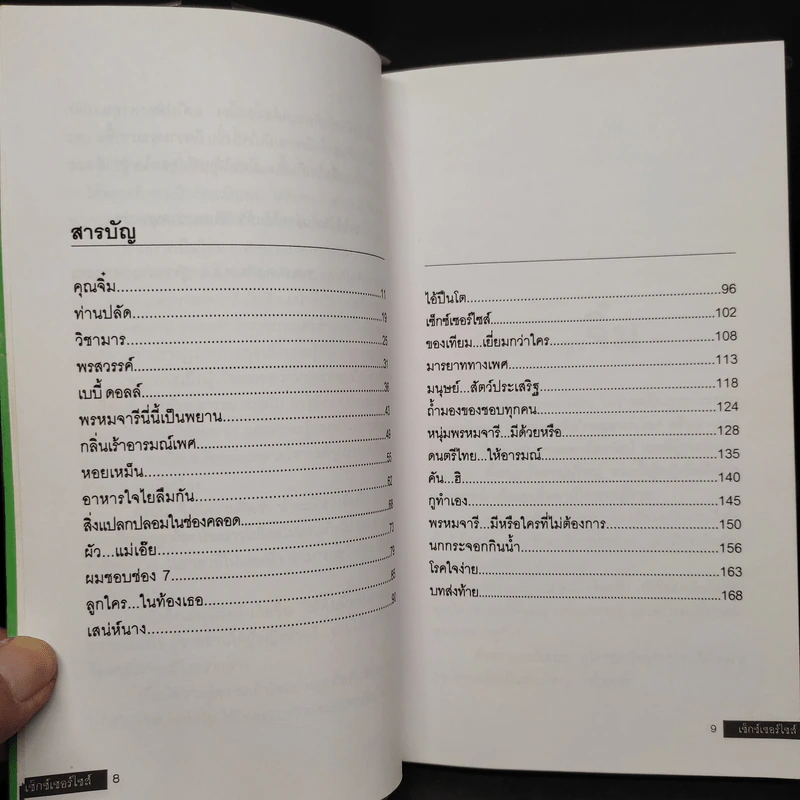 สารบัญ
คุณจิ๋ม....................11
ท่านปลัด....................19
วิชามาร....................26
พรสวรรค์....................31
เบบี้ ดอลล์....................36
พรหมจารีนี่นี้เป็นพยาน....................43
กลิ่นเร้าอารมณ์เพศ....................49
หอยเหม็น....................55
อาหารใจไยลืมกัน....................62
สิ่งแปลกปลอมในช่องคลอด....................68
ผัว...แม่เอ๊ย....................73
ผมชอบช่อง 7....................79
ลูกใคร...ในท้องเธอ....................85
เสน่ห์นาง....................90
เซ็กซ์เซอร์ไซส์ 8
ไอ้ปืนโต....................96
เซ็กซ์เซอร์ไซส์....................102
ของเทียม...เยี่ยมกว่าใคร....................108
มารยาททางเพศ....................113
มนุษย์...สัตว์ประเสริฐ....................118
ถ้ำมองของชอบทุกคน....................124
หนุ่มพรหมจารี...มีด้วยหรือ....................128
ดนตรีไทย...ให้อารมณ์....................135
คัน...ฮิ....................140
กูทำเอง....................145
พรหมจารี...มีหรือใครที่ไม่ต้องการ....................150
นกกระจอกกินน้ำ....................156
โรคใจง่าย....................163
บทส่งท้าย....................168
9 เซ็กซ์เซอร์ไซส์